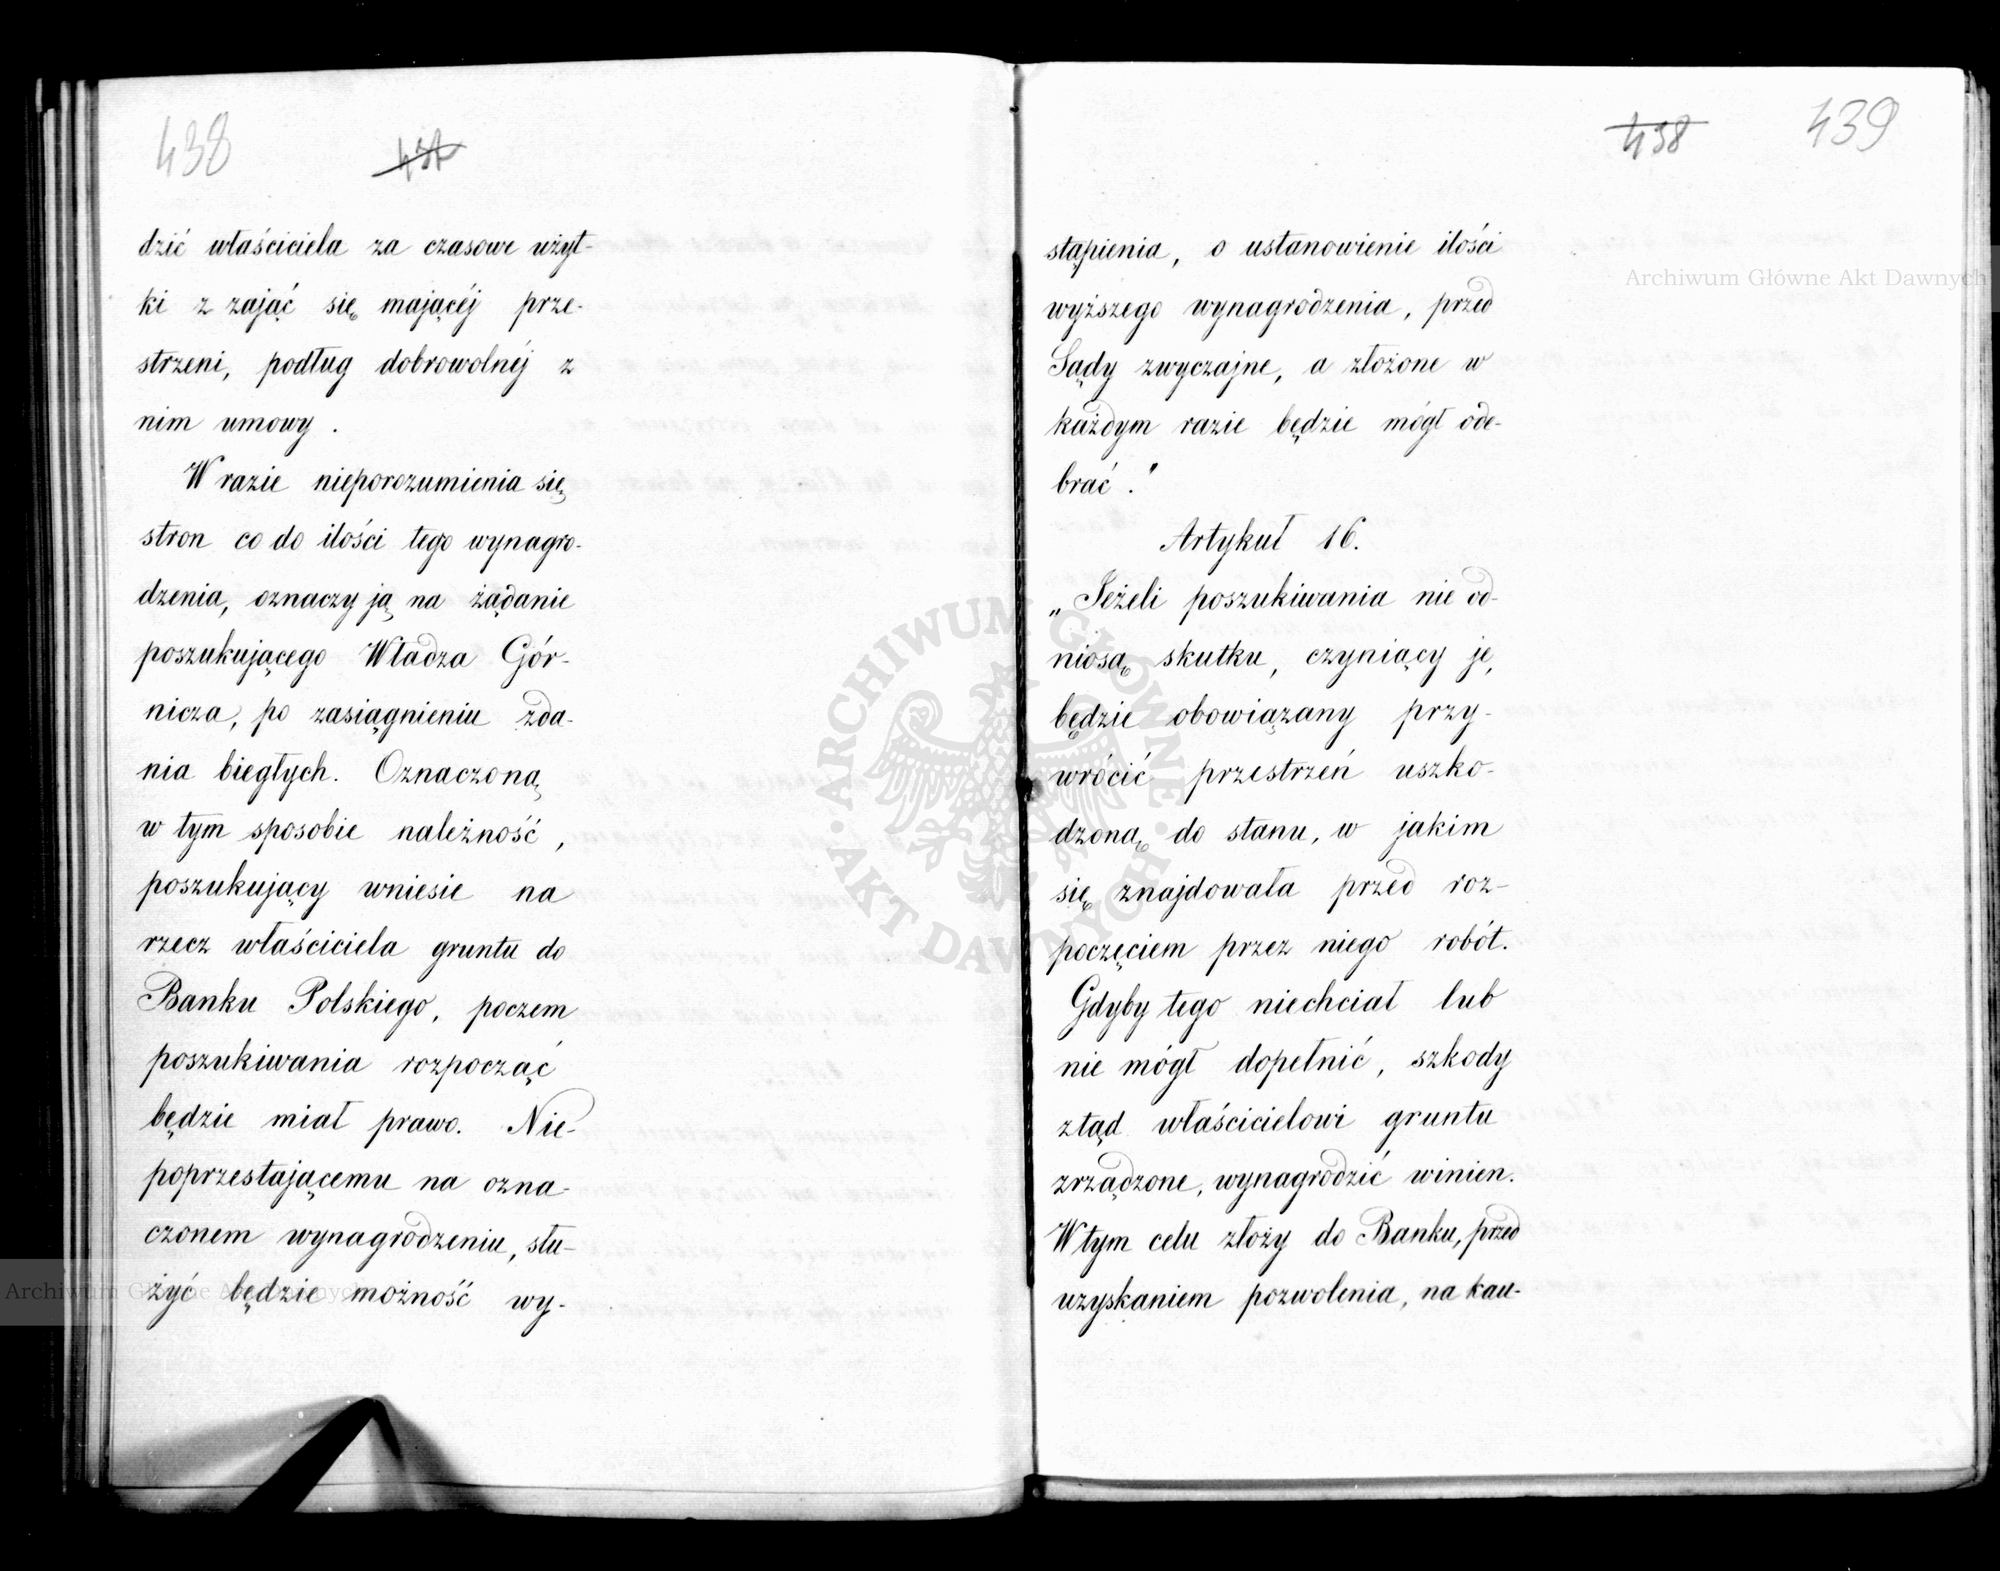 438 437
dzić właściciela za czasowe użyt-
ki z zająć się mającéj prze-
strzeni, podług dobrowolnéj z
nim umowy.
W razie nieporozumienia się
stron co do ilości tego wynagro-
dzenia, oznaczy ją na żądanie
poszukującego Władza Gór-
nicza, po zasiągnieniu zda-
nia biegłych. Oznaczoną
w tym sposobie należność,
poszukujący wniesie na
rzecz właściciela gruntu do
Banku Polskiego, poczem
poszukiwania rozpocząć
będzie miał prawo. Nie-
poprzestającemu na ozna-
czonem wynagrodzeniu, słu-
żyć będzie możność wy-
438 439
stąpienia, o ustanowienie ilości
wyższego wynagrodzenia, przed
Sądy zwyczajne, a złożone w
każdym razie będzie mógł ode-
brać."
Artykuł 16.
„Jeżeli poszukiwania nie od-
niosą skutku, czyniący je,
będzie obowiązany przy-
wrócić przestrzeń uszko-
dzoną do stanu, w jakim
się znajdowała przed roz-
poczęciem przez niego robót.
Gdyby tego niechciał lub
nie mógł dopełnić, szkody
ztąd właścicielowi gruntu
zrządzone, wynagrodzić winien.
W tym celu złoży do Banku, przed
uzyskaniem pozwolenia, na kau-
Archiwum Główne Akt Dawnych
Archiwum Główne Akt Dawnych
ARCHIWUM GŁÓWNE AKT DAWNYCH